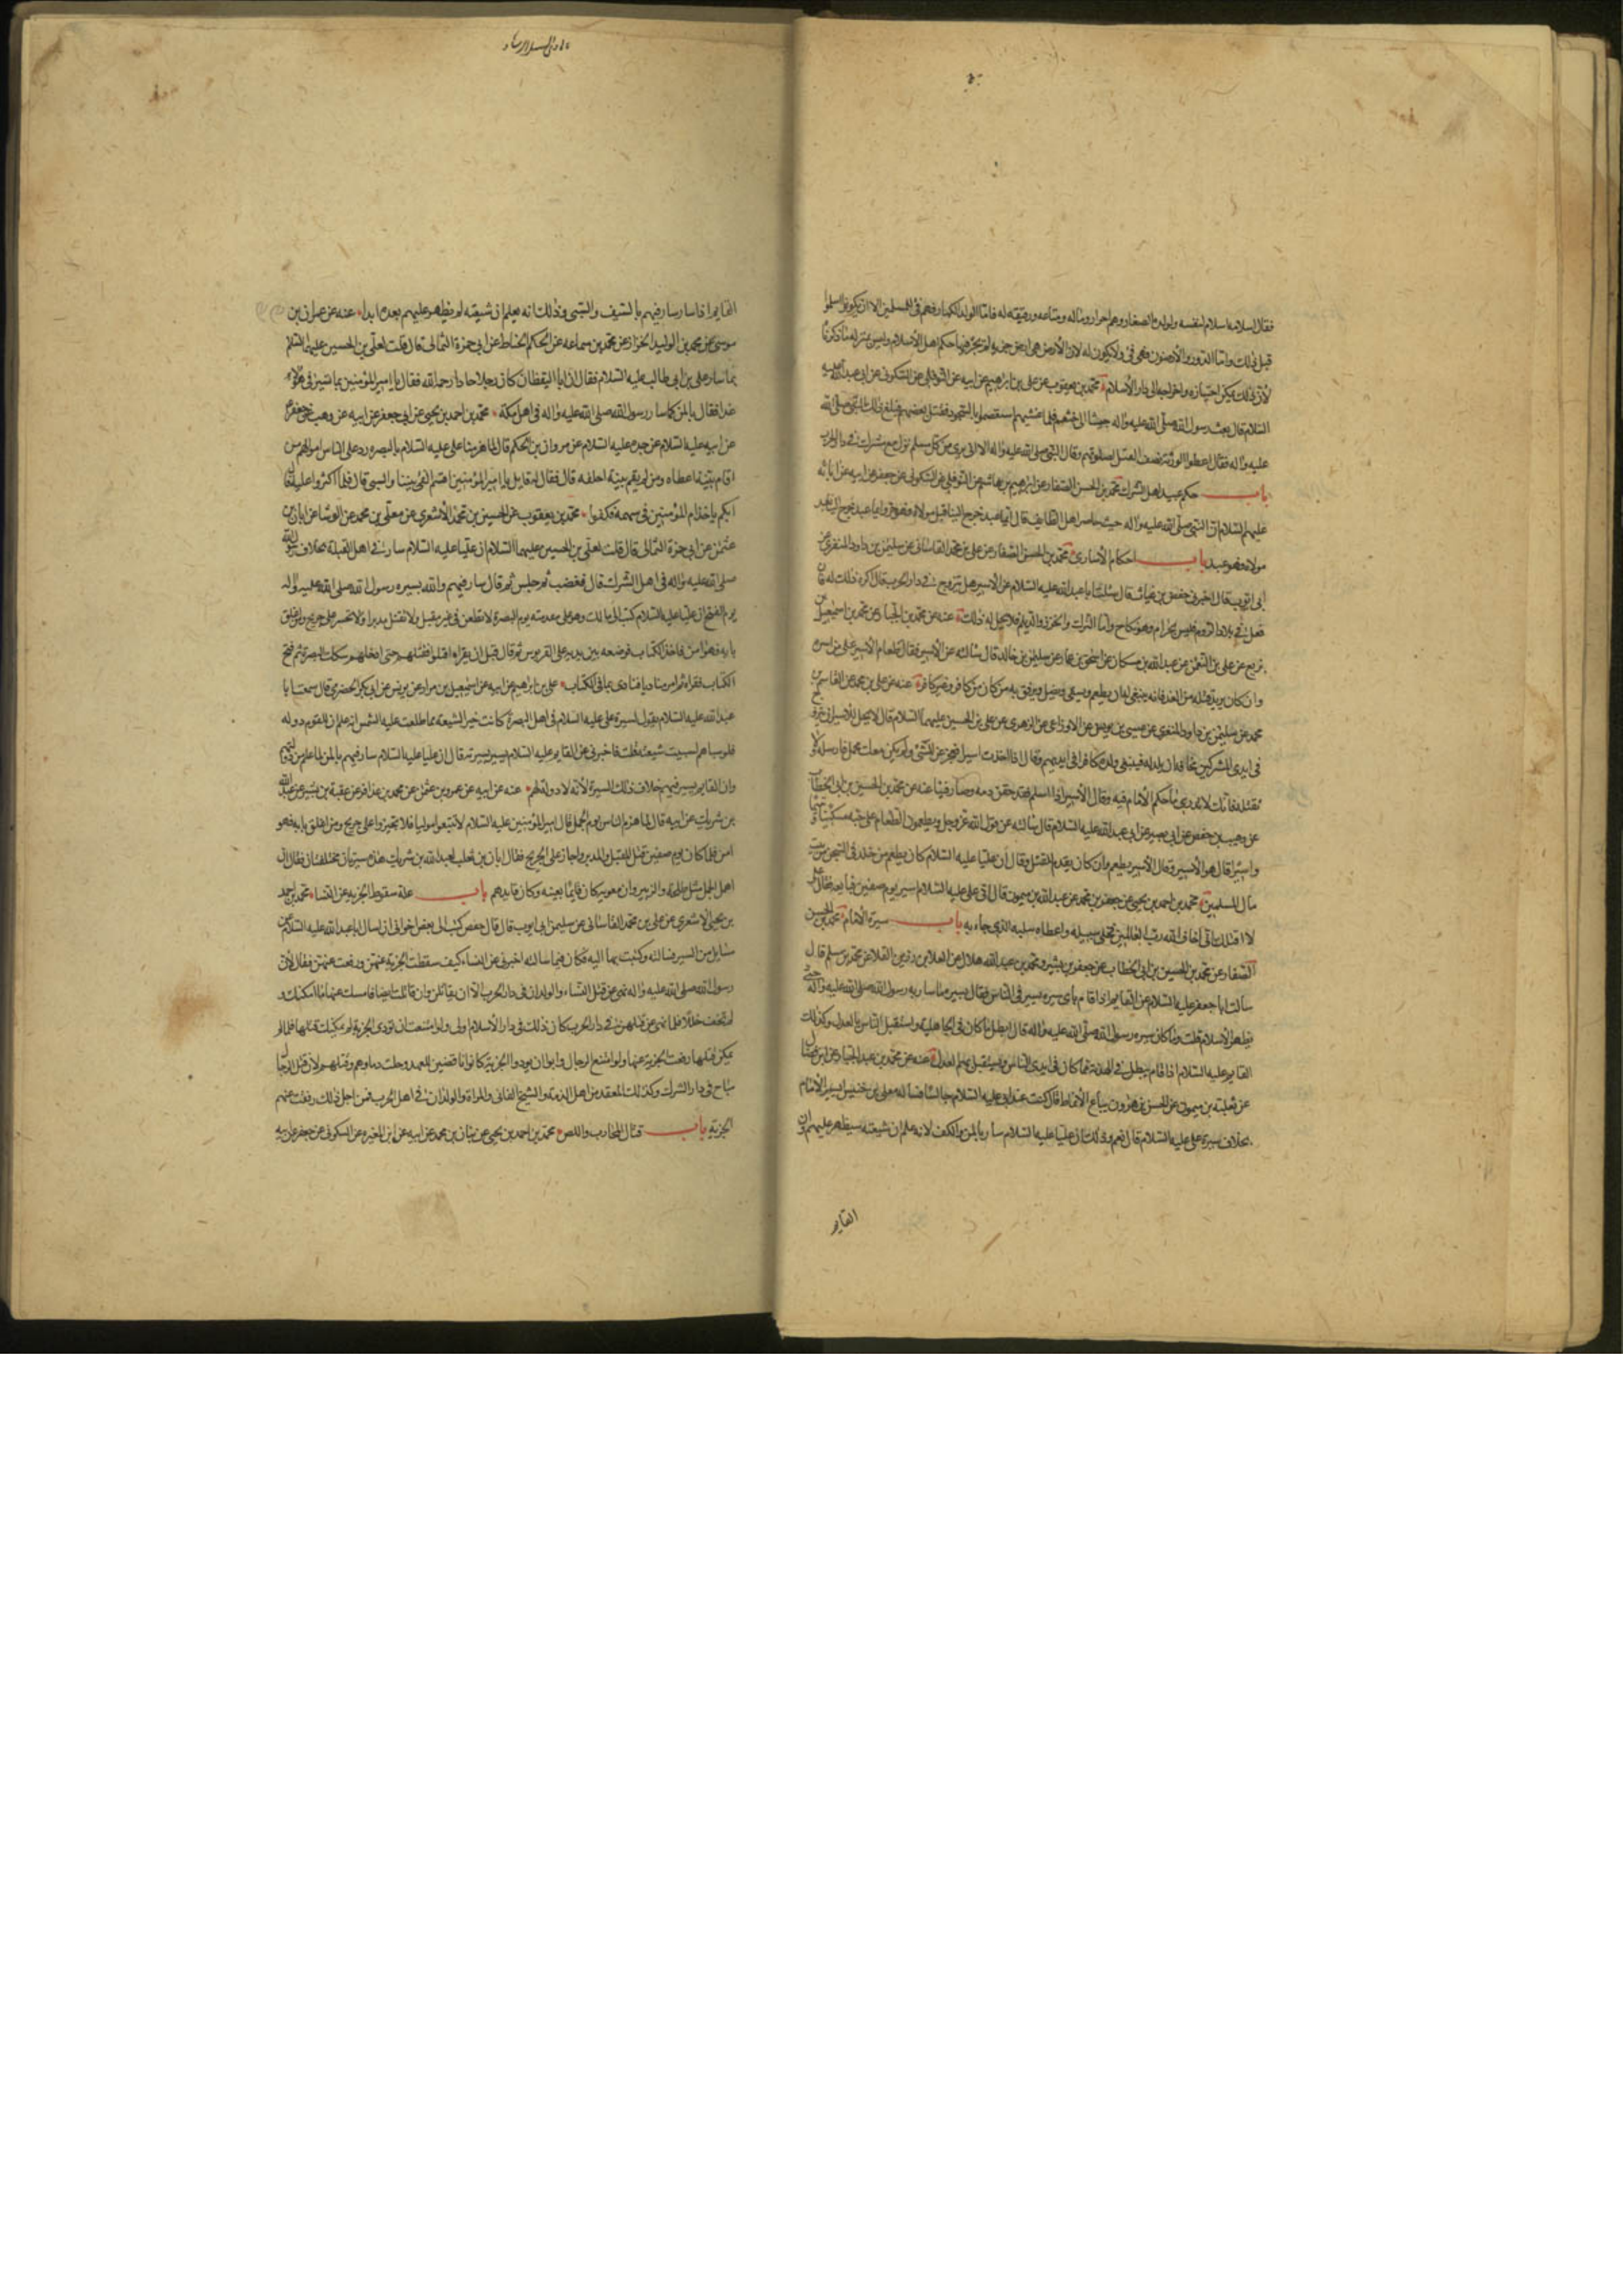 فقال اسلامه اسلام لنفسه ولولده الصغار وهم احرار وماله ومتاعه ورقيقه له فاما الولد الكبار فهم فئ للمسلمين الا ان يكونوا اسلموا
قبل ذلك واما الدور والارضون فهى فئ ولا يكون له لان الارض هى ارض جزية لم يجر فيها حكم اهل الاسلام وليس بمنزلة ما ذكرناه
لان ذلك يمكن احتيازه واخراجه الى دار الاسلام محمد بن يعقوب عن على بن ابرهيم عن ابيه عن النوفلى عن السكونى عن ابى عبد الله عليه
السلام قال بعث رسول الله صلى الله عليه واله جيشا الى خثعم فلما غشيهم استعصموا بالسجود فقتل بعضهم فبلغ ذلك النبى صلى الله
عليه واله فقال اعطوا الورثة نصف العقل بصلوتهم وقال النبى صلى الله عليه واله الا انى برئ من كل مسلم نزل مع مشرك فى دار الحرب
باب حكم عبيد اهل الشرك محمد بن الحسن الصفار عن ابرهيم بن هاشم عن النوفلى عن السكونى عن جعفر عن ابيه عن ابائه
عليهم السلام ان النبى صلى الله عليه واله حيث حاصر اهل الطايف قال ايما عبد خرج الينا قبل مولاه فهو حر وايما عبد خرج الينا بعد
مولاه فهو عبد باب احكام الاسارى محمد بن الحسن الصفار عن على بن محمد القاسانى عن سليمن بن داود المنقرى عن
ابى ايوب قال اخبرنى حفص بن غياث قال سئلت ابا عبد الله عليه السلام عن الاسير هل يتزوج فى دار الحرب قال اكره ذلك له فان
فعل فى بلاد الروم فليس بحرام وهو نكاح واما الترك والخزر والديلم فلا يحل له ذلك عنه عن محمد بن عبد الجبار عن محمد بن اسمعيل بن
بزيع عن على بن النعمن عن عبد الله بن مسكان عن اسحق بن عمار عن سليمن بن خالد قال سالته عن الاسير فقال طعام الاسير على من اسره
وان كان يريد قتله من الغد فانه ينبغى له ان يطعم ويسقى ويظل ويرفق به من كان من كافر وغير كافر عنه عن على بن محمد عن القاسم بن
محمد عن سليمن بن داود المنقرى عن عيسى بن يونس عن الاوزاعى عن الزهرى عن على بن الحسين عليهما السلام قال لا يحل للاسير ان يتزوج
فى ايدى المشركين مخافة ان يلد له فيبقى ولده كافرا فى ايديهم وقال اذا اخذت اسيرا فعجز عن المشى ولم يكن معك محمل فارسله ولا
تقتله فانك لا تدرى ما حكم الامام فيه وقال الاسير اذا اسلم فقد حقن دمه وصار فيئا عنه عن محمد بن الحسين بن ابى الخطاب
عن وهيب بن حفص عن ابى بصير عن ابى عبد الله عليه السلام قال سالته عن قول الله عز وجل ويطعمون الطعام على حبه مسكينا ويتيما
واسيرا قال هو الاسير وقال الاسير يطعم وان كان يقدم للقتل وقال ان عليا عليه السلام كان يطعم من خلد فى السجن من بيت
مال المسلمين محمد بن احمد بن يحيى عن جعفر بن محمد عن عبد الله بن ميمون قال اتى على عليه السلام باسير يوم صفين فبايعه فقال على
لا اقتلك انى اخاف الله رب العالمين فخلى سبيله واعطاه سلبه الذى جاء به باب سيرة الامام محمد بن الحسن
الصفار عن محمد بن الحسين بن ابى الخطاب عن جعفر بن بشير ومحمد بن عبد الله هلال عن العلا بن رزين القلا عن محمد بن مسلم قال
سالت ابا جعفر عليه السلام عن القايم اذا قام باى سيرة يسير فى الناس فقال بسيرة ما سار به رسول الله صلى الله عليه واله حتى
يظهر الاسلام قلت وما كان سيرة رسول الله صلى الله عليه واله قال ابطل ما كان فى الجاهلية واستقبل الناس بالعدل وكذلك
القايم عليه السلام اذا قام يبطل ما كان فى الهدنة مما كان فى ايدى الناس ويستقبل بهم العدل عنه عن محمد بن عبد الجبار عن ابن فضال
عن ثعلبة بن ميمون عن الحسن بن هرون بياع الانماط قال كنت عند ابى عليه السلام جالسا فساله معلى بن خنيس ايسير الامام
بخلاف سيرة على عليه السلام قال نعم وذلك ان عليا عليه السلام سار بالمن والكف لانه علم ان شيعته سيظهر عليهم وان
القايم
القايم اذا سار سار فيهم بالسيف والسبى وذلك انه يعلم ان شيعته لم يظهر عليهم بعده ابدا عنه عن عمران بن
موسى عن محمد بن الوليد الخزاز عن محمد بن سماعه عن الحكم الحناط عن ابى حمزة الثمالى قال قلت لعلى بن الحسين عليهما السلم
بما سار على بن ابى طالب عليه السلام فقال ان ابا اليقظان كان رجلا حادا رحمه الله فقال يا امير المؤمنين بما تسير فى هؤلاء
غدا فقال بالمن كما سار رسول الله صلى الله عليه واله فى اهل مكة محمد بن احمد بن يحيى عن ابى جعفر عن ابيه عن وهب عن جعفر
عن ابيه عليه السلام عن جده عليه السلام عن مروان بن الحكم قال لما هزمنا على عليه السلام بالبصره رد على الناس اموالهم من
اقام بينة اعطاه ومن لم يقم بينة احلفه قال فقال له قايل يا امير المؤمنين اقسم الفئ بيننا والسبى قال فلما اكثروا عليه قال
ايكم ياخذ ام المؤمنين فى سهمه فكفوا محمد بن يعقوب عن الحسين بن محمد الاشعرى عن معلى بن محمد عن الوشا عن ابان بن
عثمن عن ابى حمزة الثمالى قال قلت لعلى بن الحسين عليهما السلام ان عليا عليه السلام سار فى اهل القبلة بخلاف رسول الله
صلى الله عليه واله فى اهل الشرك قال فغضب ثم جلس ثم قال سار فيهم والله بسيره رسول الله صلى الله عليه واله
يوم الفتح ان عليا عليه السلام كتب الى مالك وهو على مقدمته يوم البصرة لا تطعن فى غير مقبل ولا تقتل مدبرا ولا تجهز على جريح ومن اغلق
بابه فهو امن فاخذ الكتاب فوضعه بين يديه على القربوس ثم قال قبل ان يقراه اقتلوا فقتلهم حتى ادخلهم سكك البصرة ثم فتح
الكتاب فقراه ثم امر مناديا فنادى بما فى الكتاب على بن ابرهيم عن ابيه عن اسمعيل بن مرار عن يونس عن ابى بكر الحضرمى قال سمعت ابا
عبد الله عليه السلام يقول لسيرة على عليه السلام فى اهل البصرة كانت خيرا لشيعته مما طلعت عليه الشمس انه علم ان للقوم دوله
فلو سباهم لسبيت شيعته قلت فاخبرنى عن القايم عليه السلام يسير بسيرته قال ان عليا عليه السلام سار فيهم بالمن لما علم من دولتهم
وان القايم يسير فيهم بخلاف ذلك السيرة لانه لا دولة لهم عنه عن ابيه عن عمرو بن عثمن عن محمد بن عذافر عن عقبة بن بشير عن عبد الله
بن شريك عن ابيه قال لما هزم الناس يوم الجمل قال امير المؤمنين عليه السلام لا تتبعوا موليا فلا تجيزوا على جريح ومن اغلق بابه فهو
امن فلما كان يوم صفين قتل المقبل والمدبر واجاز على الجريح فقال ابان بن تغلب لعبد الله بن شريك هذه سيرتان مختلفتان فقال ان
اهل الجمل قتل طلحة والزبير وان معويه كان قايما بعينه وكان قايدهم باب علة سقوط الجزيه عن النساء محمد بن احمد
بن يحيى الاشعرى عن على بن محمد القاسانى عن سليمن ابى ايوب قال قال حفص كتب الى بعض اخوانى ان اسال ابا عبد الله عليه السلام عن
مسايل من السير فسالته وكتبت بها اليه فكان فيما سالته اخبرنى عن النساء كيف سقطت الجزية عنهن ورفعت عنهن فقال لان
رسول الله صلى الله عليه واله نهى عن قتل النساء والولدان فى دار الحرب الا ان يقاتلن وان قاتلت ايضا فامسك عنها ما امكنك و
لم تخف خللا فلما نهى عن قتلهن فى دار الحرب كان ذلك فى دار الاسلام اولى ولو امتنعت ان تودى الجزية لم يمكنك قتلها فلما لم
يمكن قتلها رفعت الجزية عنها ولو امتنع الرجال وابوا ان يودوا الجزية كانوا ناقضين للعهد وحلت دماوهم وقتلهم لان قتل الرجال
مباح فى دار الشرك وكذلك المقعد من اهل الذمة والشيخ الفانى والمراة والولدان فى اهل الحرب فمن اجل ذلك رفعت عنهم
الجزية باب قتال المحارب واللص محمد بن احمد بن يحيى عن بنان بن محمد عن ابيه عن ابن المغيره عن السكونى عن جعفر عن ابيه